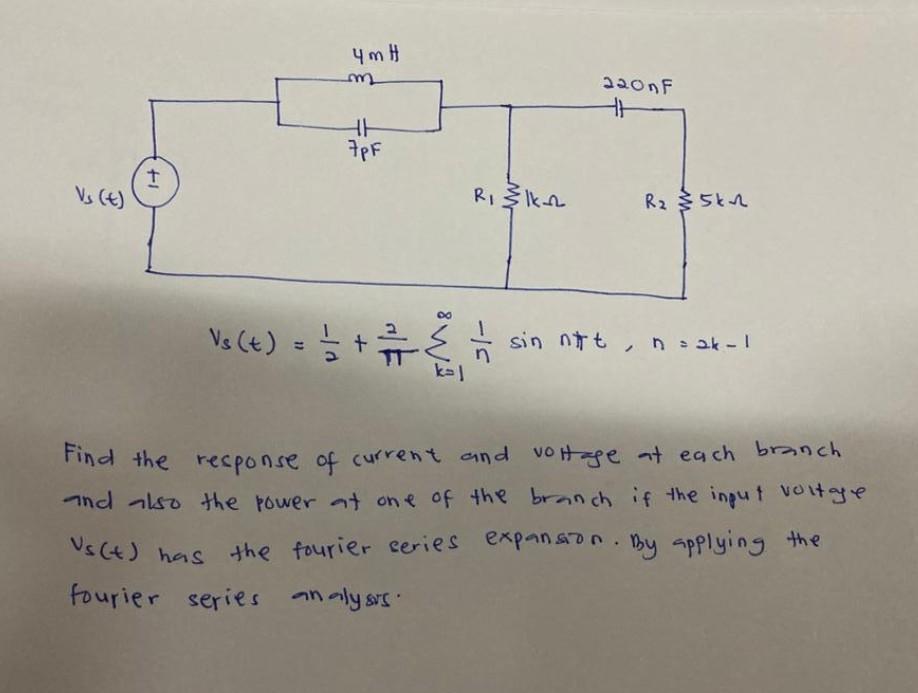 4mH
220nF
7pF
Vs(t)
+
-
R1 1kΩ
R2 5kΩ
Vs(t) = 1/2 + 2/π ∞Σk=1 1/n sin nπt , n = 2k-1
Find the response of current and voltage at each branch
and also the power at one of the branch if the input voltage
Vs(t) has the fourier series expansion. By applying the
fourier series analysis.